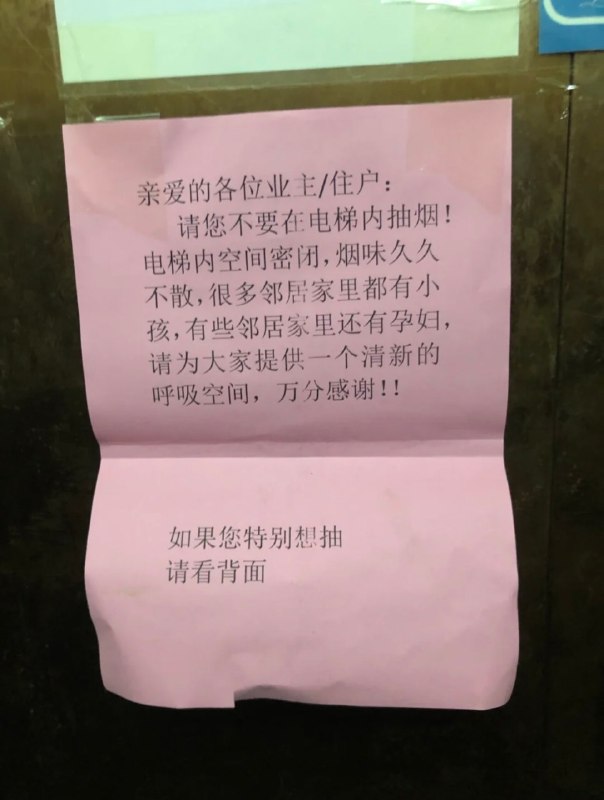 亲爱的各位业主/住户：
请您不要在电梯内抽烟！
电梯内空间密闭，烟味久久
不散，很多邻居家里都有小
孩，有些邻居家里还有孕妇，
请为大家提供一个清新的
呼吸空间，万分感谢！！
如果您特别想抽
请看背面